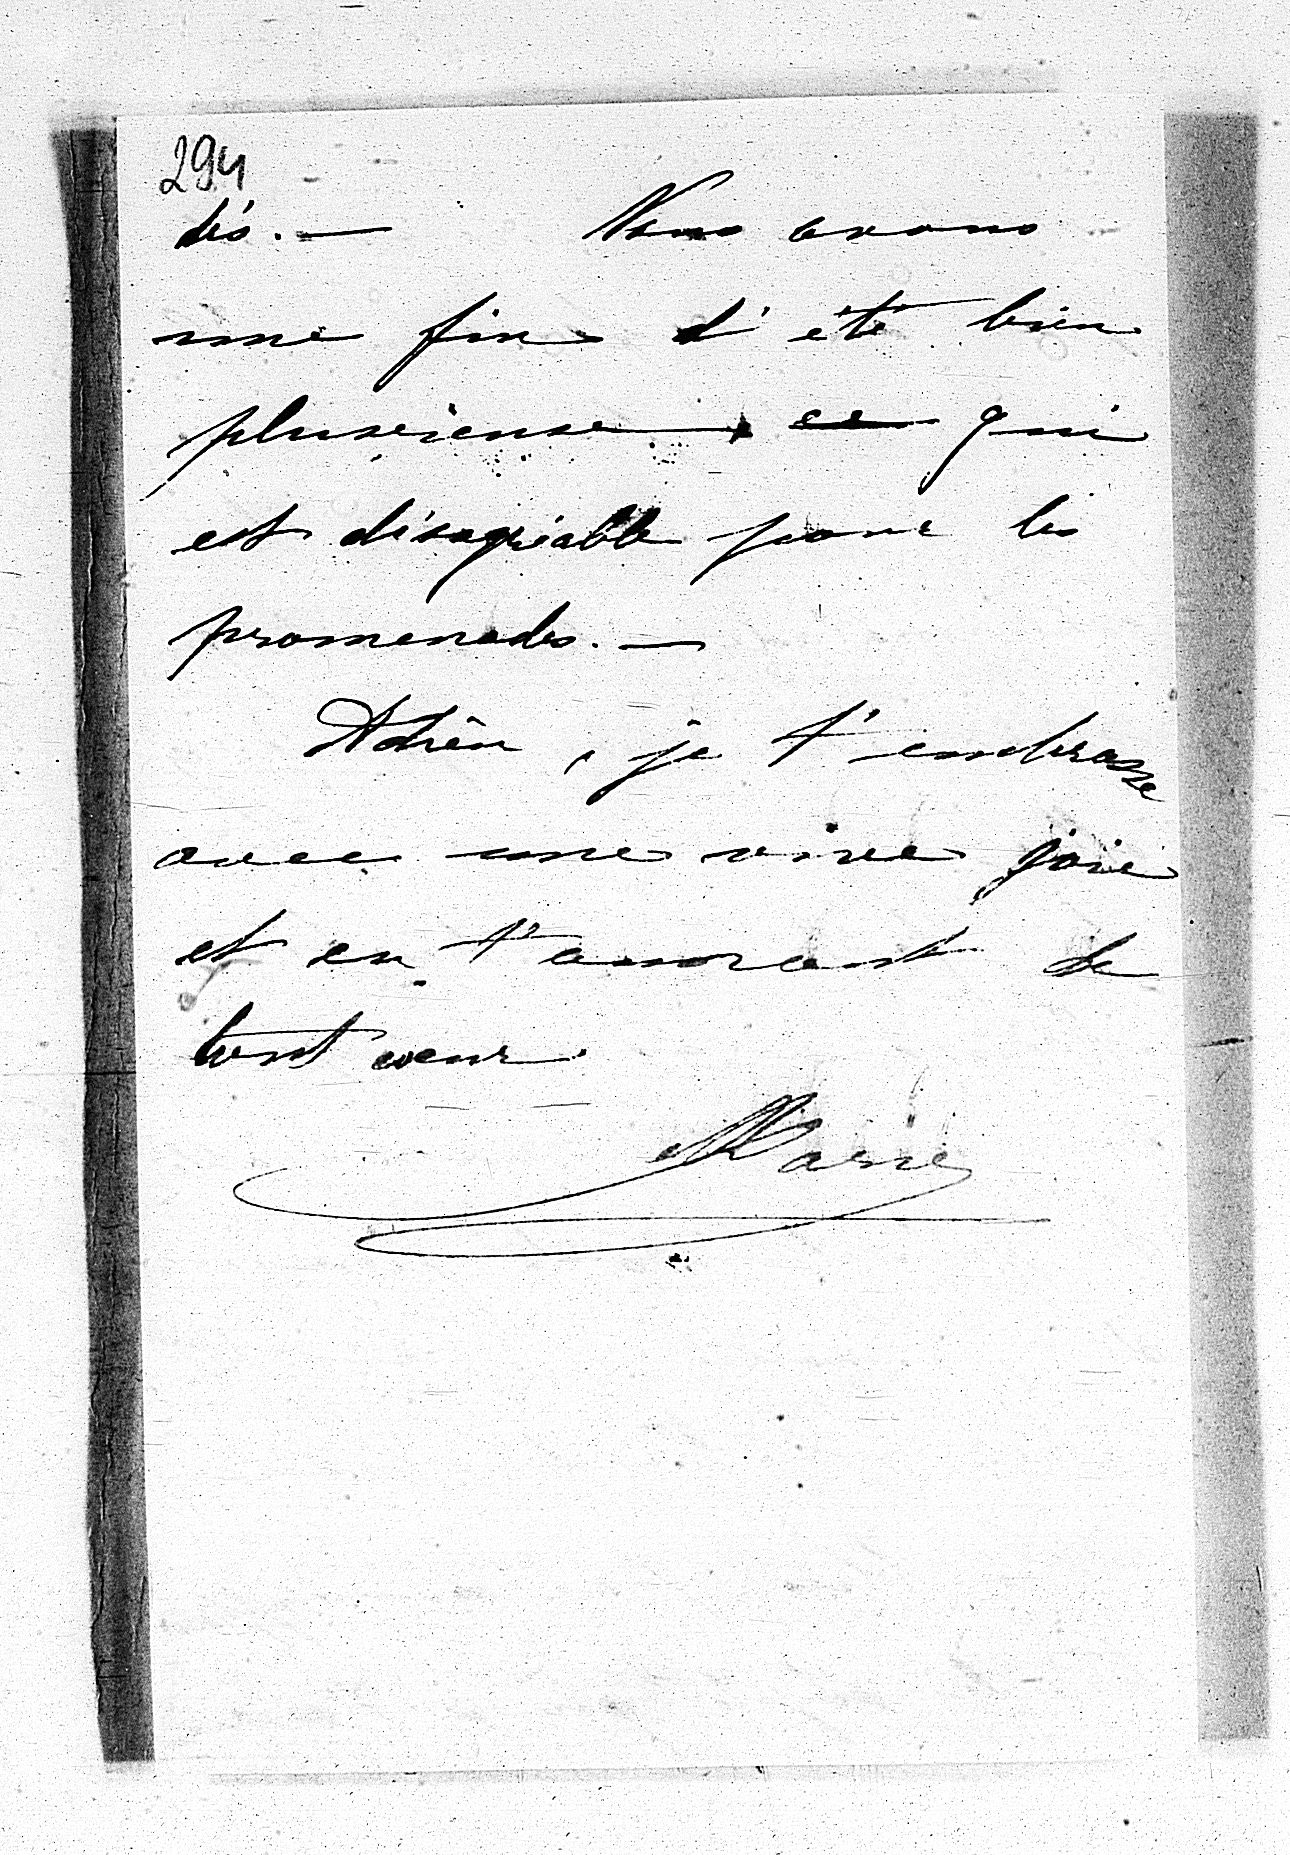 294
tés. — Nous avons
une fin d'été bien
pluvieuse, ce qui
est désagréable pour les
promenades. —
Adieu, je t'embrasse
avec une vive joie
et en t'assurant de
tout cœur.
Marie